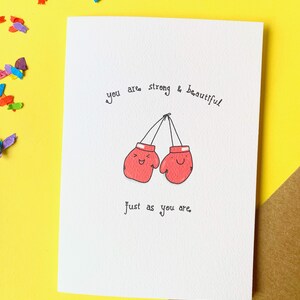 you are strong & beautiful
just as you are